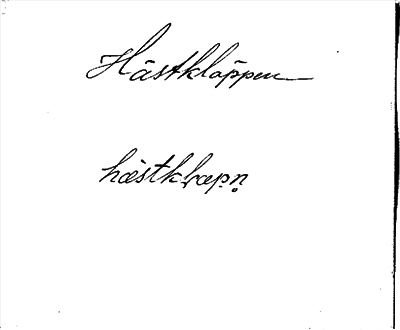 Hästkläppen
hæstkḷæp.n̥